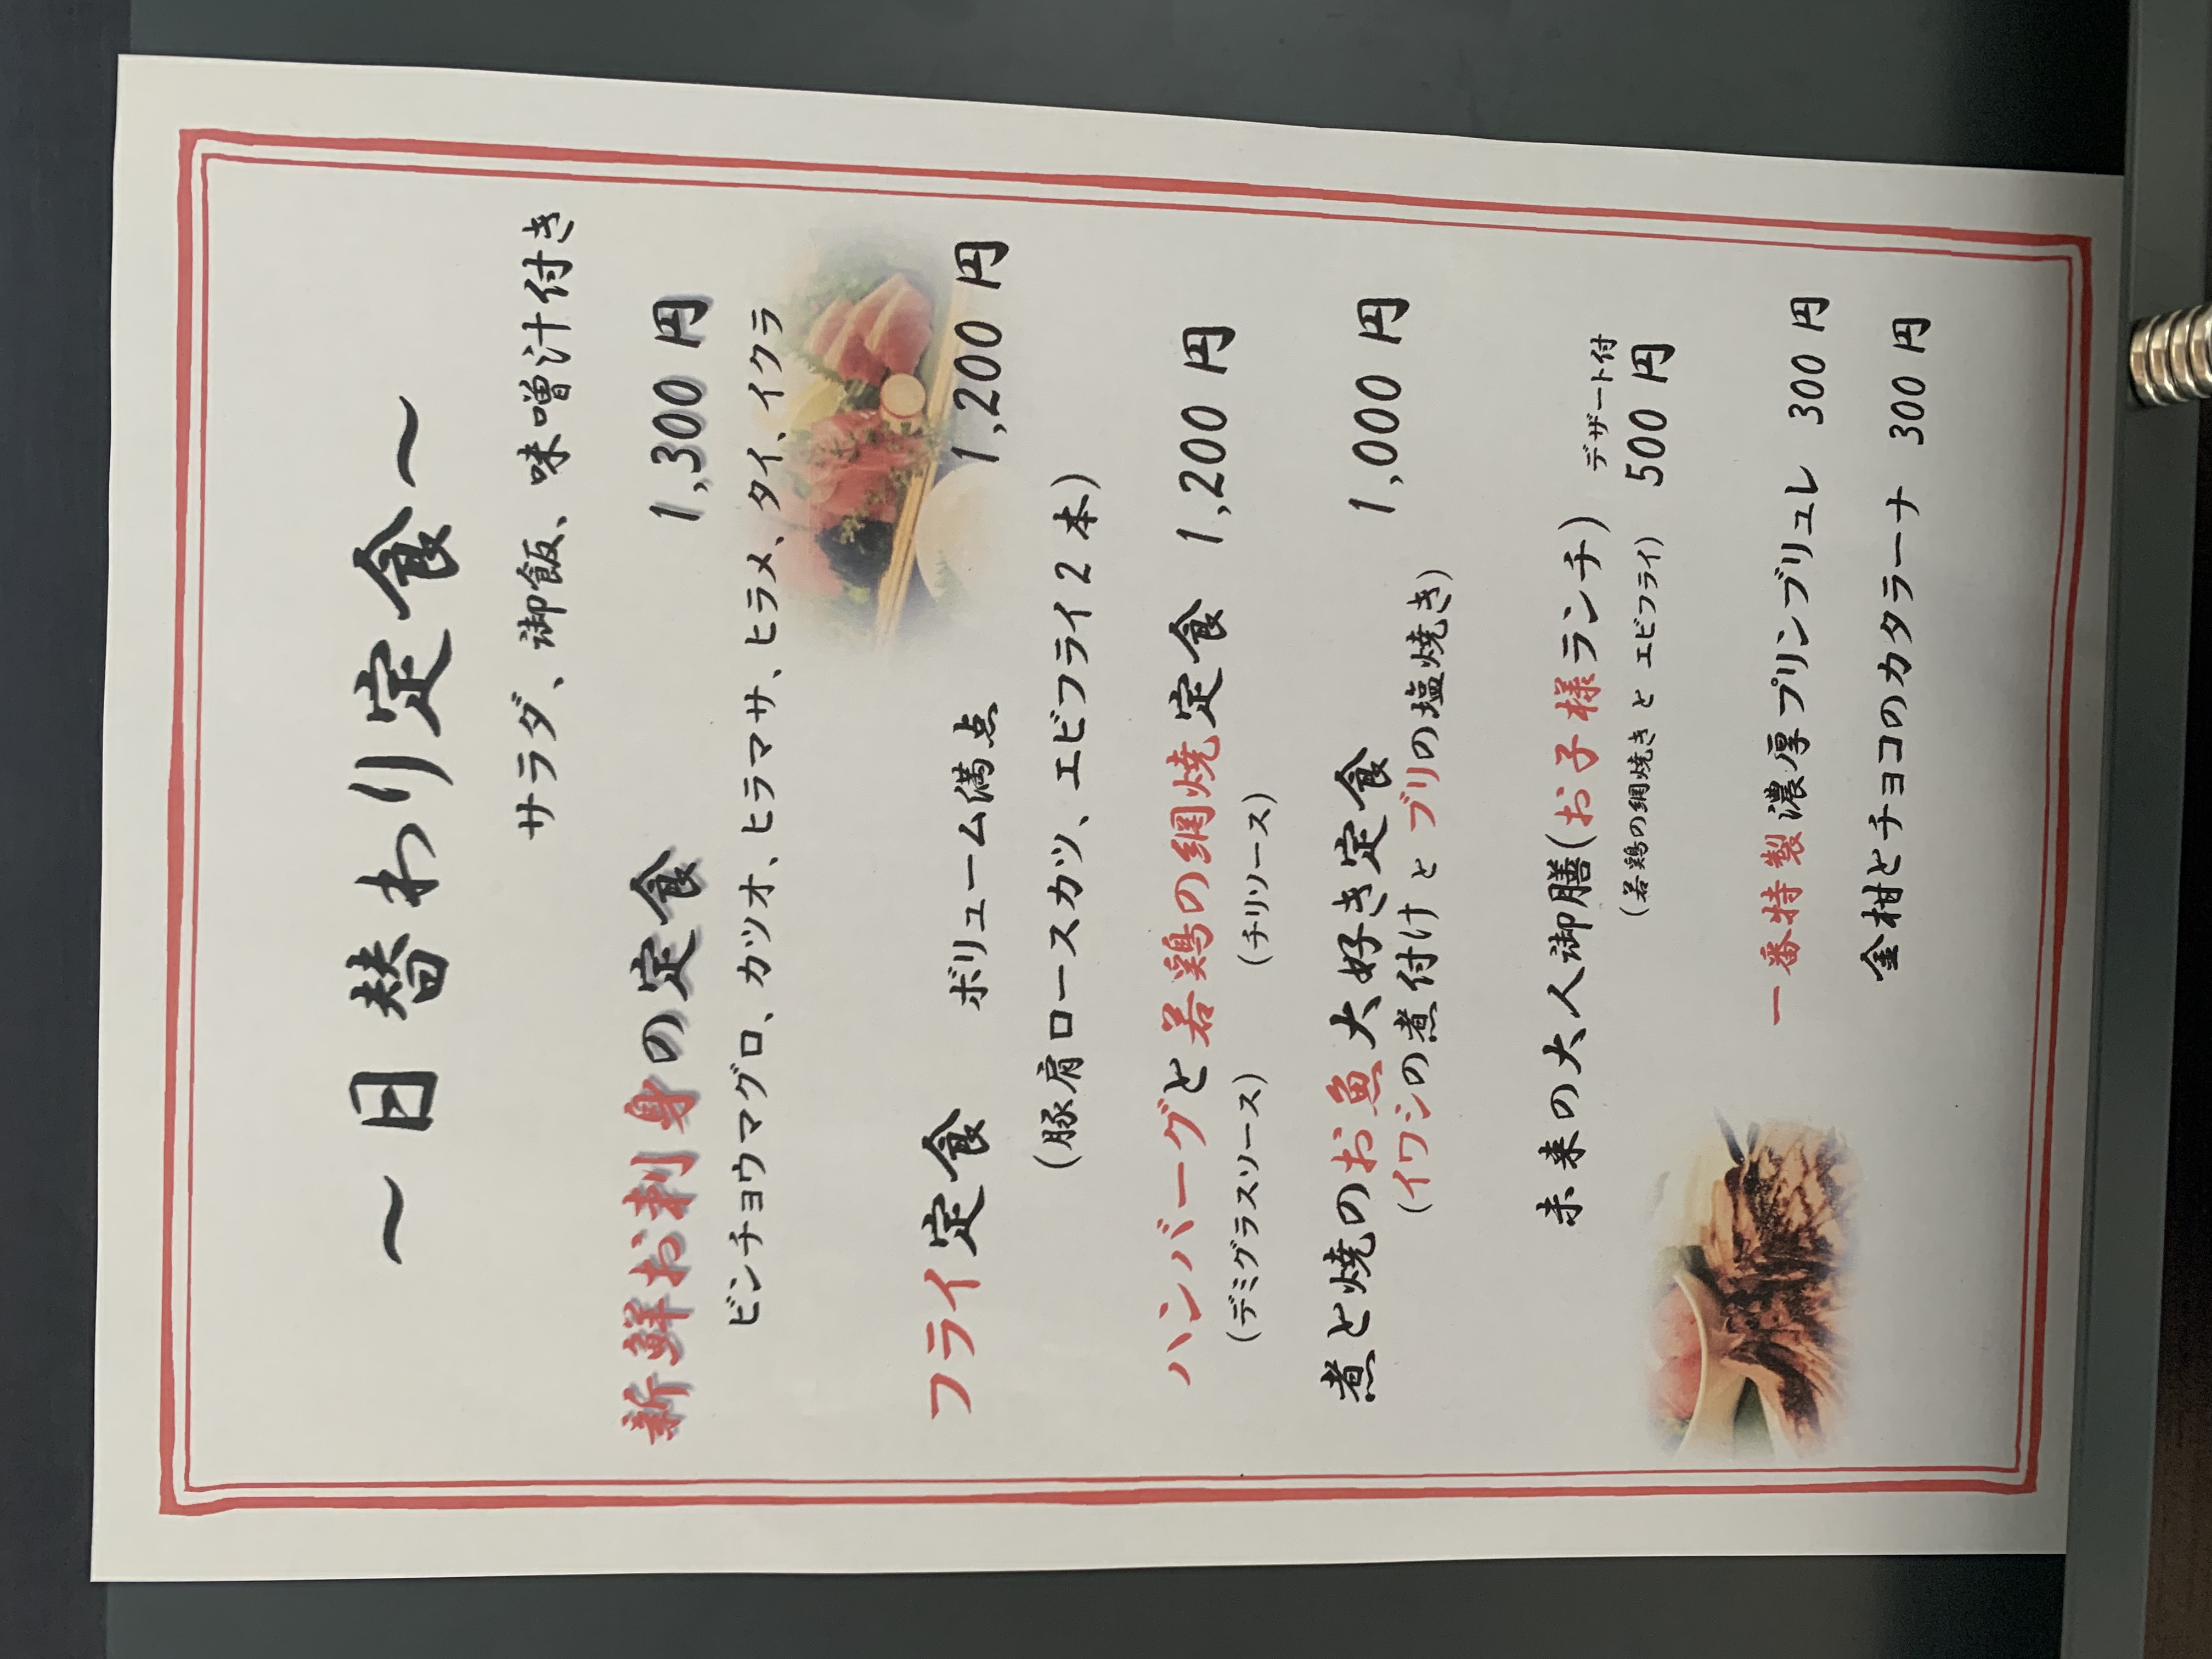 ～日替わり定食～
サラダ、御飯、味噌汁付き
新鮮お刺身の定食 1,300円
ビンチョウマグロ、カツオ、ヒラマサ、ヒラメ、タイ、イクラ
フライ定食 ボリューム満点 1,200円
(豚肩ロースカツ、エビフライ2本)
ハンバーグと若鶏の網焼定食 1,200円
(デミグラスソース) (チリソース)
煮と焼のお魚大好き定食 1,000円
(イワシの煮付けとブリの塩焼き)
未来の大人御膳(お子様ランチ) デザート付
(若鶏の網焼きとエビフライ) 500円
一番特製濃厚プリンブリュレ 300円
金柑とチョコのカタラーナ 300円